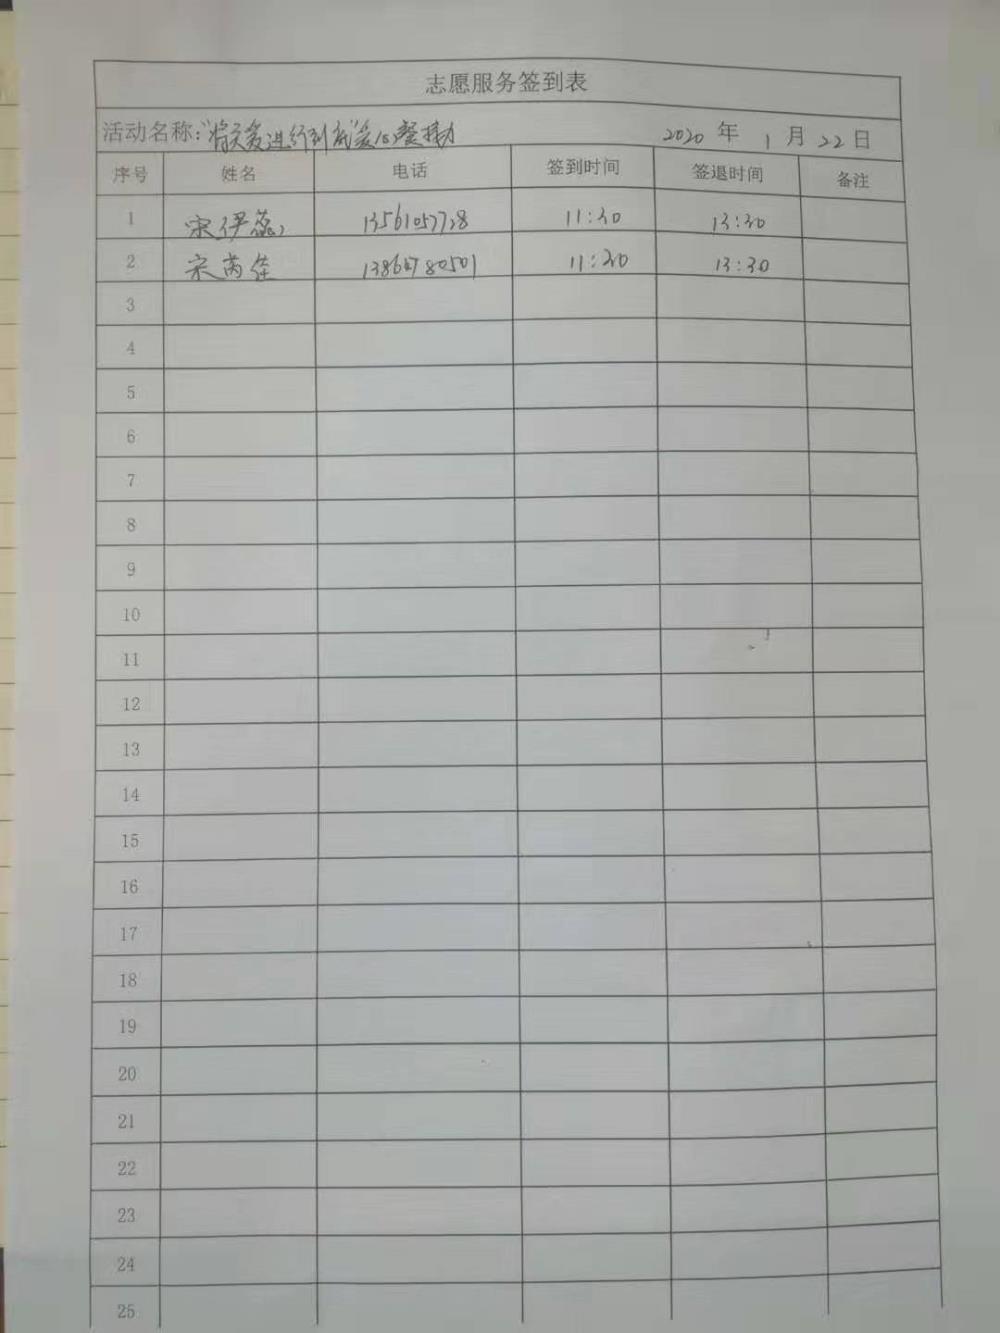 志愿服务签到表
活动名称:"将关爱进行到底"爱心餐接力 2020 年 1 月 22 日
序号 姓名 电话 签到时间 签退时间 备注
1 宋伊蕊 13561057728 11:30 13:30
2 宋芮佳 13864780501 11:30 13:30
3
4
5
6
7
8
9
10
11
12
13
14
15
16
17
18
19
20
21
22
23
24
25